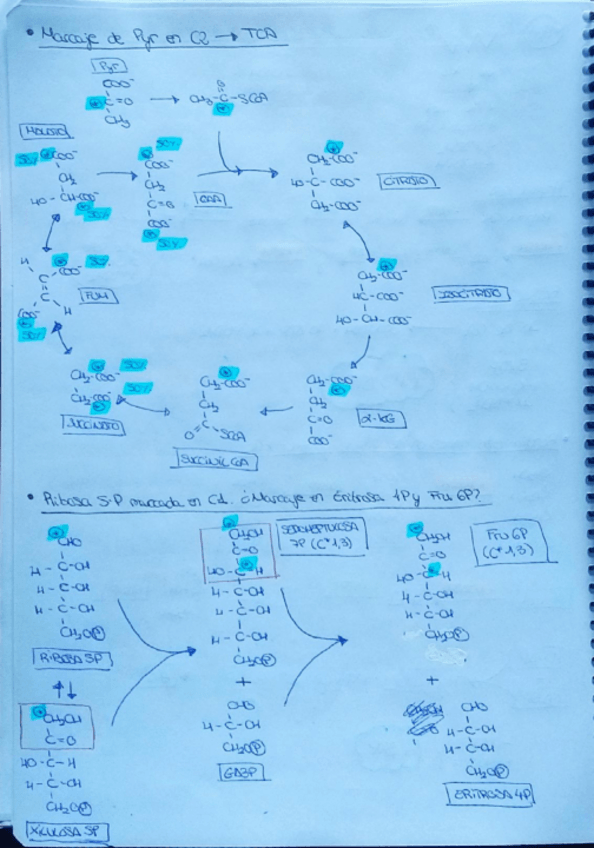 • Marcaje de Pyr en C2 → TCA
Pyr
COO⁻
C=O
CH₃
→
CH₃-C-SCoA
O
MALATO
50%
COO⁻
CH₂
HO-CH-COO⁻
50%
50%
COO⁻
CH₂
C=O
COO⁻
50%
OAA
CH₂-COO⁻
HO-C-COO⁻
CH₂-COO⁻
CITRATO
H
COO⁻
50%
C
C
COO⁻
H
50%
FUM
CH₂-COO⁻
HC-COO⁻
HO-CH-COO⁻
ISOCITRATO
CH₂-COO⁻
50%
CH₂-COO⁻
50%
SUCCINATO
CH₂-COO⁻
CH₂
C
O
SCoA
SUCCINIL CoA
CH₂-COO⁻
CH₂
C=O
COO⁻
α-KG
• Ribosa 5-P marcada en C1. ¿Marcaje en Eritrosa 4P y Fru 6P?
CHO
H-C-OH
H-C-OH
H-C-OH
CH₂OP
RIBOSA 5P
↑↓
CH₂OH
C=O
HO-C-H
H-C-OH
CH₂OP
XILULOSA 5P
CH₂OH
C=O
HO-C-H
H-C-OH
H-C-OH
H-C-OH
CH₂OP
SEDOHEPTULOSA
7P (C* 1,3)
+
CHO
H-C-OH
CH₂OP
GA3P
CH₂OH
C=O
HO-C-H
H-C-OH
H-C-OH
CH₂OP
Fru 6P
(C* 1,3)
+
CHO
H-C-OH
H-C-OH
CH₂OP
ERITROSA 4P